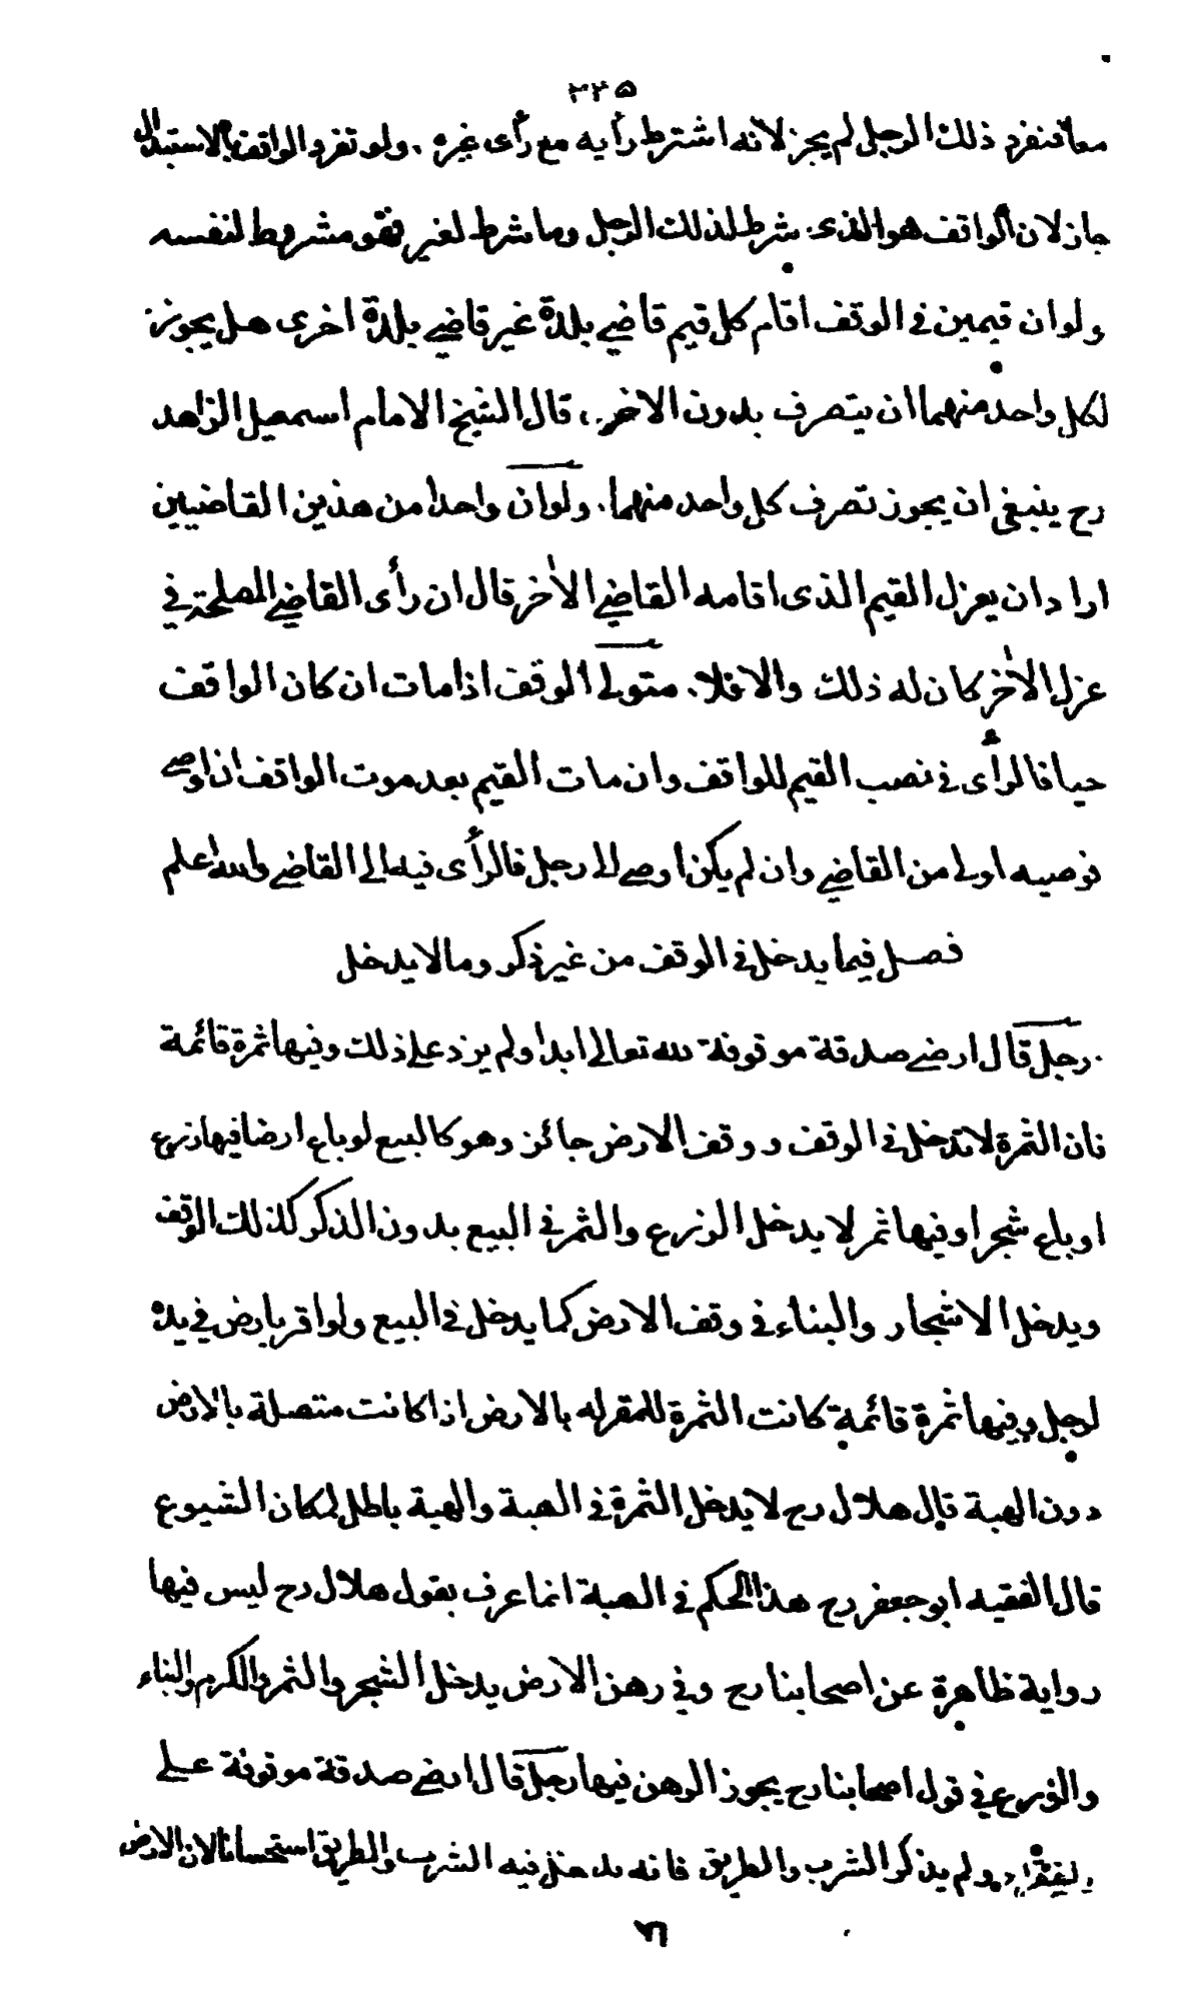 ٢٢٥
معا فتفرد ذلك الرجل لم يجز لانه اشترط رأيه مع رأى غيره . ولو تفرد الواقف بالاستبدال
جاز لان الواقف هو الذى شرط لذلك الرجل وما شرط لغيره فهو مشروط لنفسه
ولو ان قيمين فى الوقف اقام كل قيم قاضى بلدة غير قاضى بلدة اخرى هل يجوز
لكل واحد منهما ان يتصرف بدون الاخر ، قال الشيخ الامام اسمعيل الزاهد
رح ينبغى ان يجوز تصرف كل واحد منهما . ولو ان واحدا من هذين القاضيين
اراد ان يعزل القيم الذى اقامه القاضى الاخر قال ان رأى القاضى المصلحة فى
عزل الاخر كان له ذلك والا فلا . متولى الوقف اذا مات ان كان الواقف
حيا فالرأى فى نصب القيم للواقف وان مات القيم بعد موت الواقف ان اوصى
فوصيه اولى من القاضى وان لم يكن اوصى الى رجل فالرأى فيه الى القاضى والله اعلم
فصل فيما يدخل فى الوقف من غير ذكر وما لا يدخل
رجل قال ارضى صدقة موقوفة لله تعالى ابدا ولم يزد على ذلك وفيها ثمرة قائمة
فان الثمرة لا تدخل فى الوقف ووقف الارض جائز وهو كالبيع لو باع ارضا فيها زرع
او باع شجرا وفيها ثمر لا يدخل الزرع والثمر فى البيع بدون الذكر كذلك الوقف
ويدخل الاشجار والبناء فى وقف الارض كما يدخل فى البيع ولو اقر بارض فى يده
لرجل وفيها ثمرة قائمة كانت الثمرة للمقر له بالارض اذا كانت متصلة بالارض
دون الهبة قال هلال رح لا يدخل الثمرة فى الهبة والهبة باطل لمكان الشيوع
قال الفقيه ابو جعفر رح هذا الحكم فى الهبة انما عرف بقول هلال رح ليس فيها
رواية ظاهرة عن اصحابنا رح وفى رهن الارض يدخل الشجر والثمر والكرم والبناء
والزرع فى قول اصحابنا رح يجوز الرهن فيها رجل قال ارضى صدقة موقوفة على
الفقراء ولم يذكر الشرب والطريق فانه يدخل فيه الشرب والطريق استحسانا لان الارض